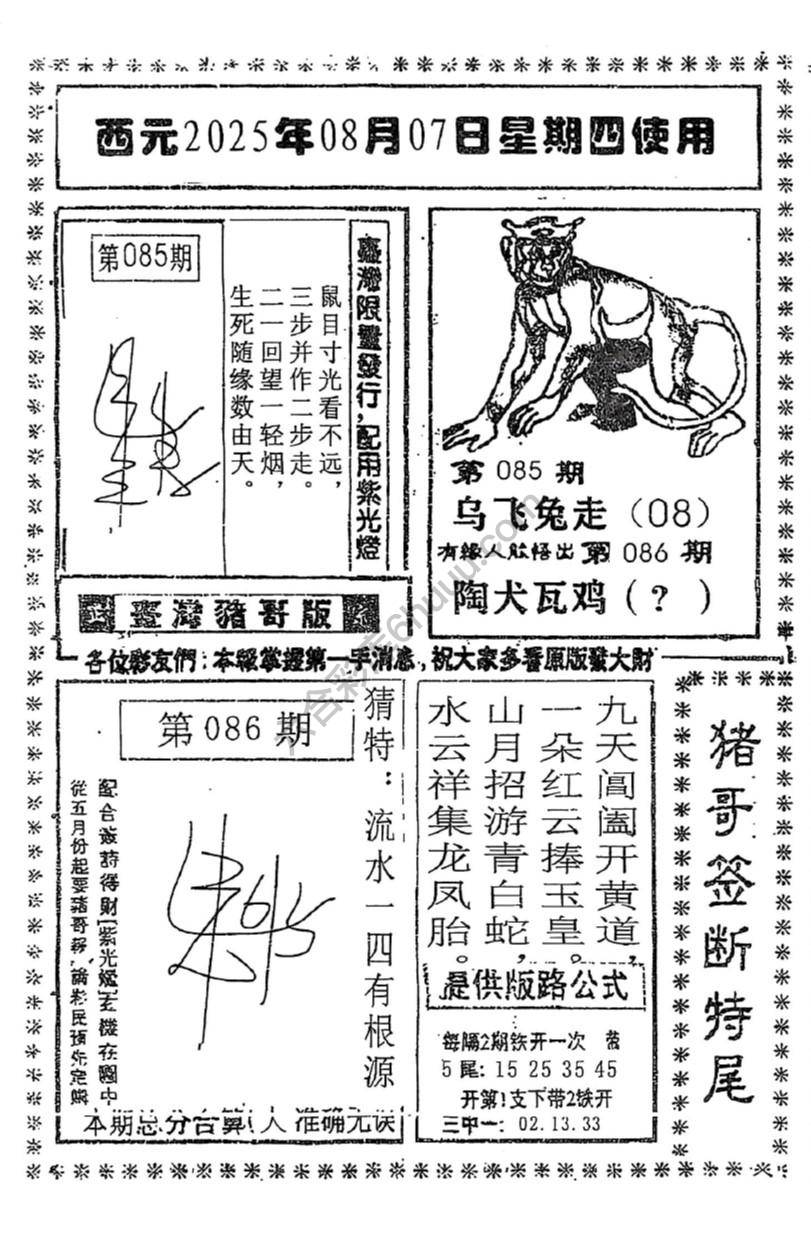 西元2025年08月07日星期四使用
第085期
臺灣限量發行，配用紫光燈
鼠目寸光看不远，
三步并作二步走。
二一回望一轻烟，
生死随缘数由天。
臺灣豬哥版
第 085 期
乌飞兔走（08）
有緣人能悟出 第 086 期
陶犬瓦鸡（？）
各位彩友們：本報掌握第一手消息，祝大家多看原版發大財
第086期
猜特：流水一四有根源
配合簽詩得財【紫光燈】玄機在圖中
本期总分合算1人 准确无误
九天阊阖开黄道，
一朵红云捧玉皇。
山月招游青白蛇，
水云祥集龙凤胎。
提供版路公式
每隔2期铁开一次
5尾：15 25 35 45
开第1支下带2铁开
三中一：02.13.33
猪哥签断特尾
六合彩库6huuu.com